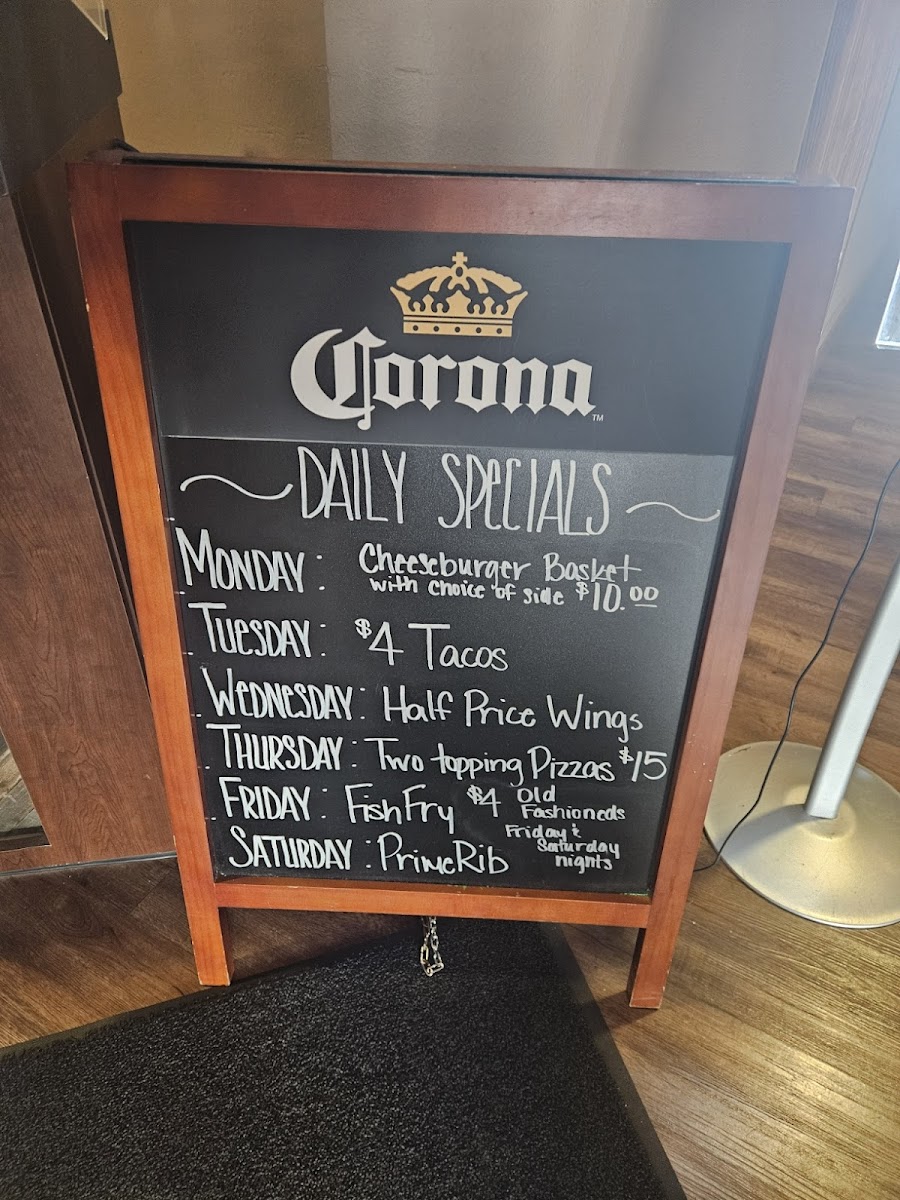 Corona
TM
DAILY SPECIALS
MONDAY: Cheeseburger Basket
with choice of side $10.00
TUESDAY: $4 Tacos
WEDNESDAY: Half Price Wings
THURSDAY: Two topping Pizzas $15
FRIDAY: Fish Fry
$4 Old
Fashioneds
Friday &
Saturday
nights
SATURDAY: Prime Rib